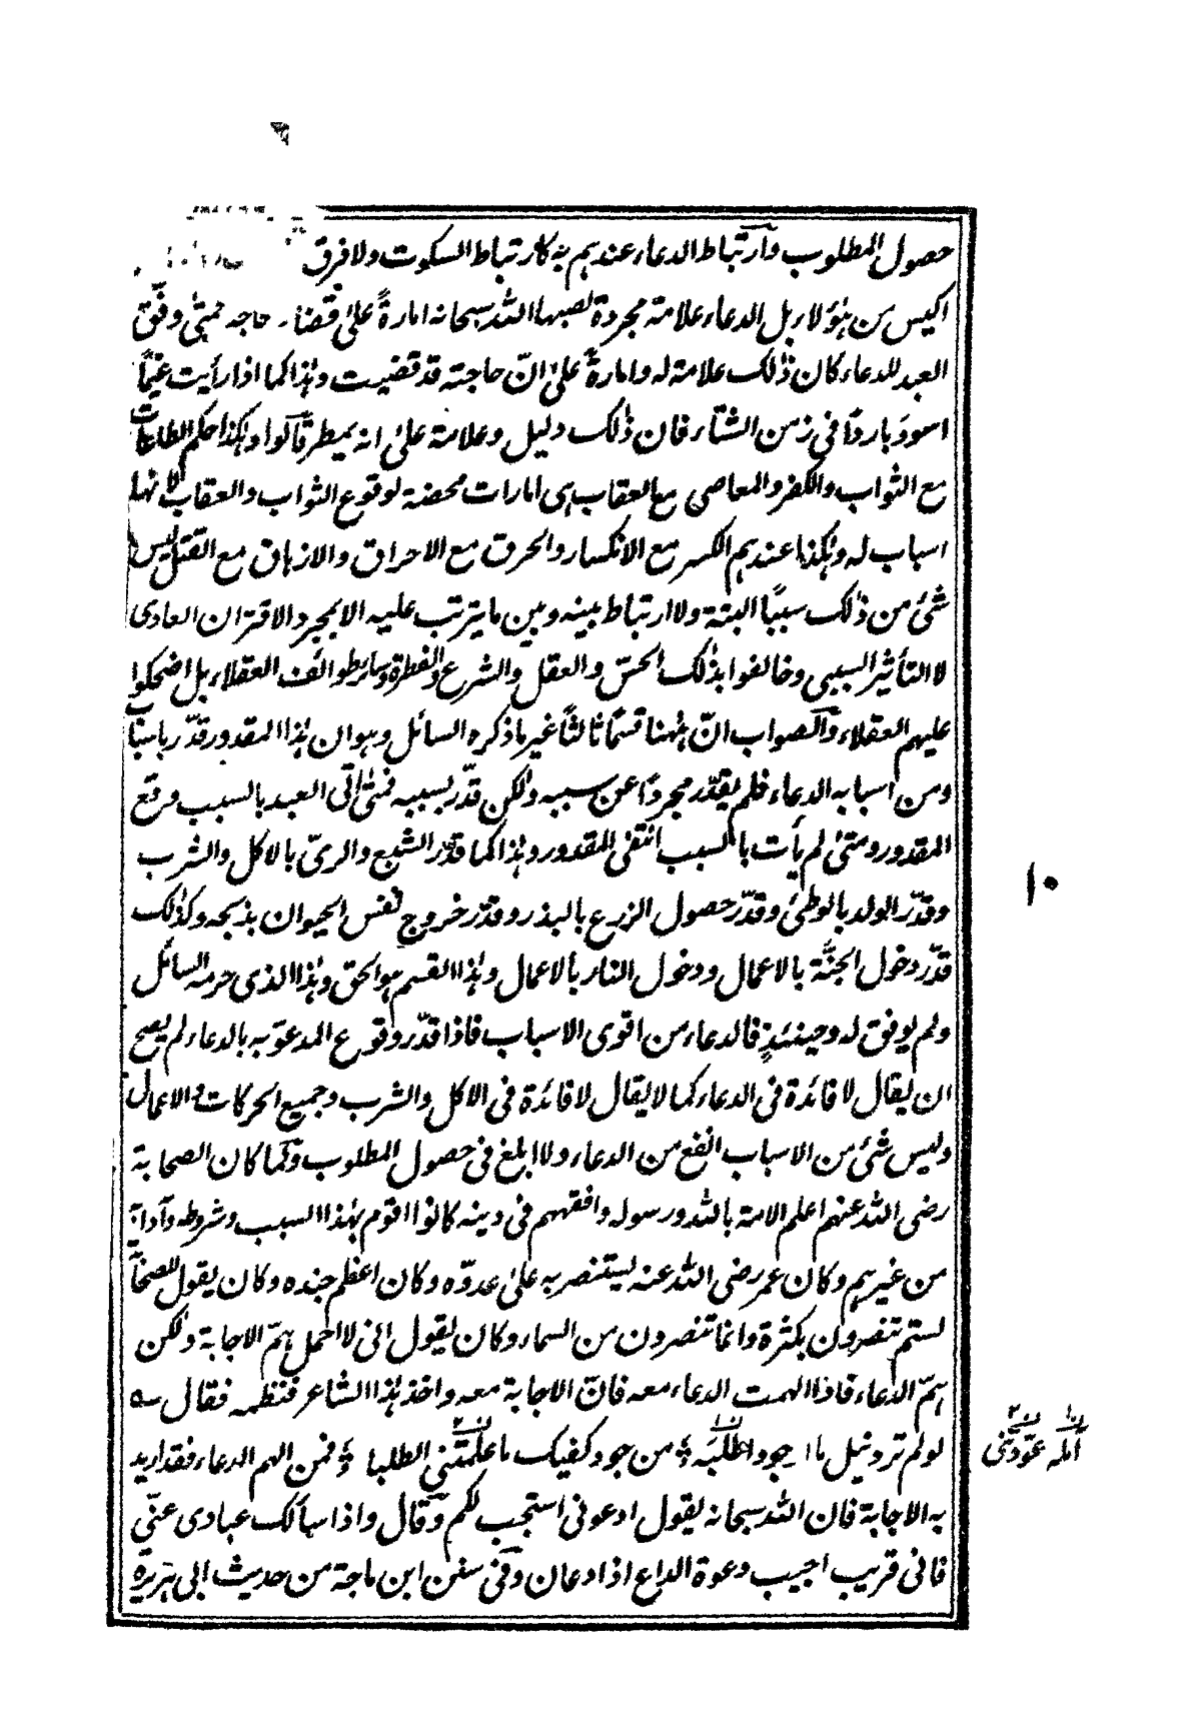 حصول المطلوب وارتباط الدعاء عندهم به كارتباط السكوت ولا فرق
اكيس من هؤلاء بل الدعاء علامة مجردة نصبها الله سبحانه امارةً على قضاء حاجه فمتى وفّق
العبد للدعاء كان ذلك علامة له وامارةً على انّ حاجته قد قضيت وهذا كما اذا رأيت غيمًا
اسودَ باردًا فى زمن الشتاء فان ذلك دليل وعلامة على انه يمطر قالوا وهكذا حكم الطاعات
مع الثواب والكفر والمعاصى مع العقاب هى امارات محضة لوقوع الثواب والعقاب لا انها
اسباب له وهكذا عندهم الكسر مع الانكسار والحرق مع الاحراق والازهاق مع القتل ليس
شئ من ذلك سببًا البتة ولا ارتباط بينه وبين ما يترتب عليه الا بمجرد الاقتران العادى
لا التأثير السببى وخالفوا بذلك الحسّ والعقل والشرع والفطرة وسائر طوائف العقلاء بل اضحكوا
عليهم العقلاء والصواب انّ ههنا قسمًا ثالثًا غير ما ذكره السائل وهو ان هذا المقدور قدّر باسبابٍ
ومن اسبابه الدعاء فلم يقدّر مجردًا عن سببه ولكن قدّر بسببه فمتى اتى العبد بالسبب وقع
المقدور ومتى لم يأت بالسبب انتفى المقدور وهذا كما قدّر الشبع والرىّ بالاكل والشرب
وقدّر الولد بالوطئ وقدّر حصول الزرع بالبذر وقدّر خروج نفس الحيوان بذبحه وكذلك
قدّر دخول الجنّة بالاعمال ودخول النار بالاعمال وهذا القسم هو الحق وهذا الذى حرمه السائل
ولم يوفق له وحينئذٍ فالدعاء من اقوى الاسباب فاذا قدّر وقوع المدعوّ به بالدعاء لم يصح
ان يقال لا فائدة فى الدعاء كما لا يقال لا فائدة فى الاكل والشرب وجميع الحركات والاعمال
وليس شئ من الاسباب انفع من الدعاء ولا ابلغ فى حصول المطلوب وكما كان الصحابة
رضى الله عنهم اعلم الامة بالله ورسوله وافقههم فى دينه كانوا اقوم بهذا السبب وشروطه وآدابه
من غيرهم وكان عمر رضى الله عنه يستنصر به على عدوّه وكان اعظم جنده وكان يقول للصحابة
لستم تنصرون بكثرة وانما تنصرون من السماء وكان يقول انى لا احمل همّ الاجابة ولكن
همّ الدعاء فاذا الهمت الدعاء معه فانّ الاجابة معه واخذ هذا الشاعر فنظمه فقال
لو لم ترد نيل ما ارجو واطلبه من جود كفيك ما علّمتنى الطلبا فمن الهم الدعاء فقد اريد
به الاجابة فان الله سبحانه يقول ادعونى استجب لكم وقال واذا سألك عبادى عنّى
فانى قريب اجيب دعوة الداع اذا دعان وفى سنن ابن ماجة من حديث ابى هريرة
١٠
عوّدتنى